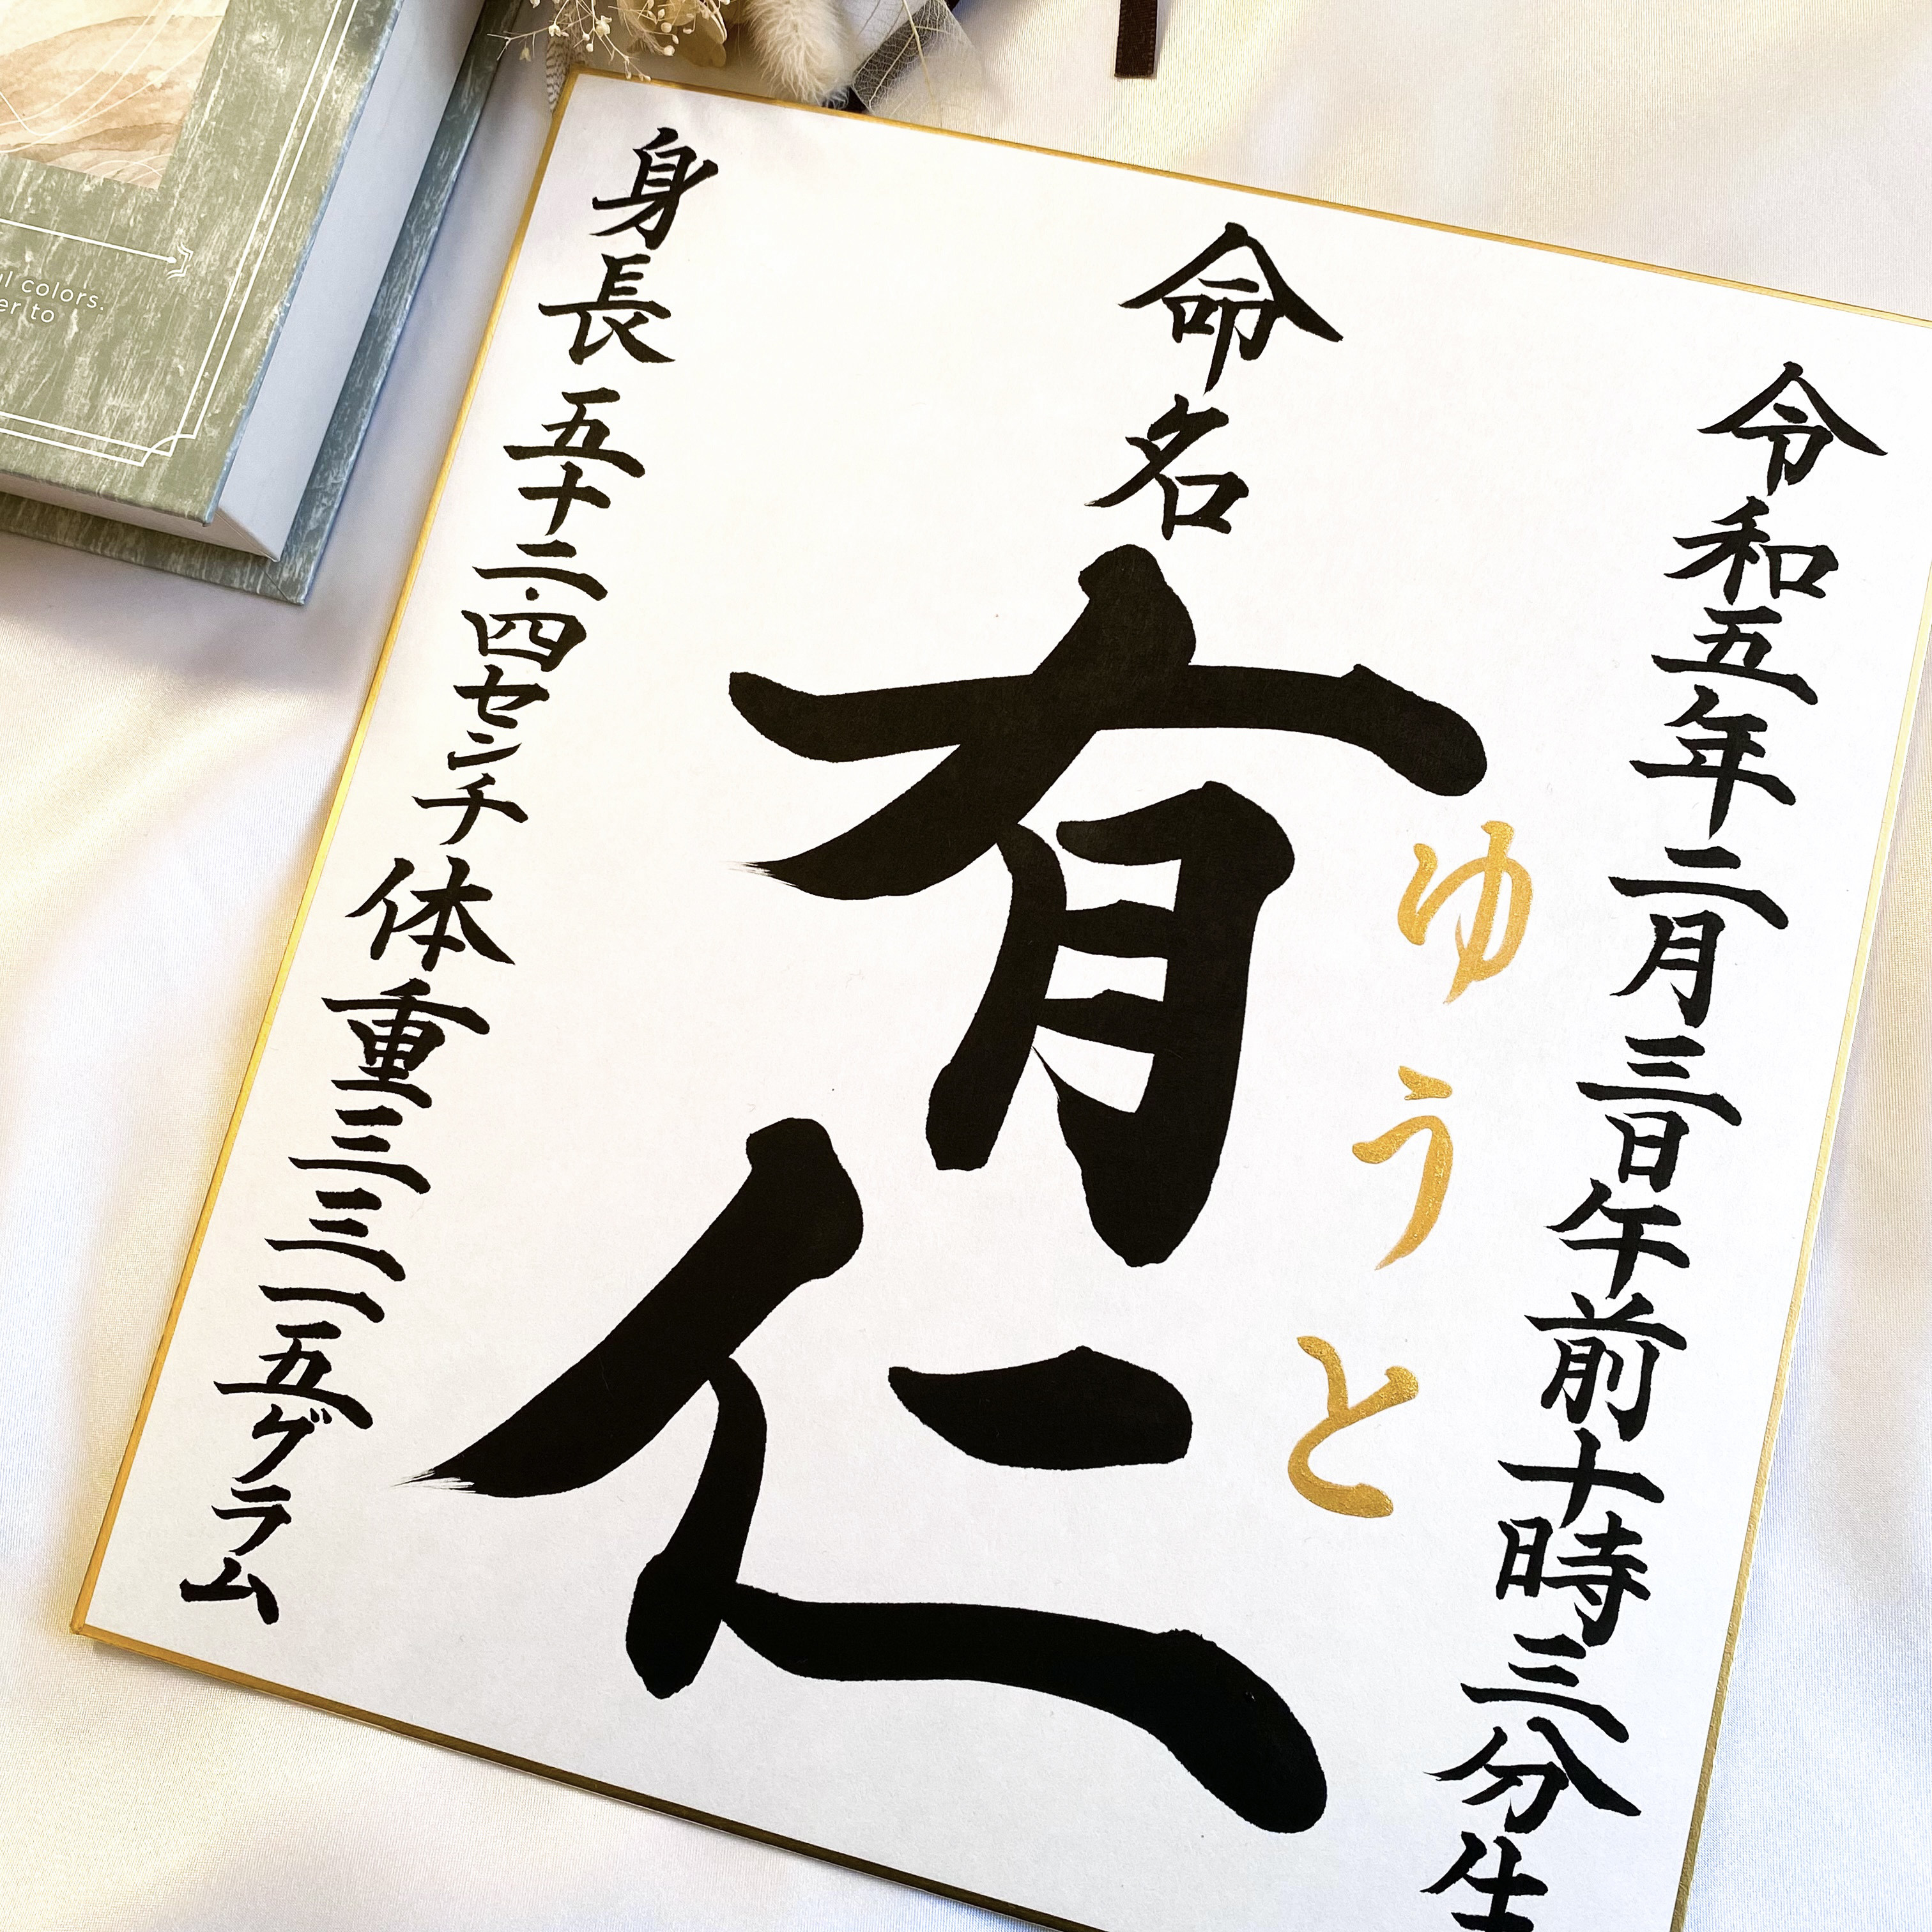 令和五年二月三日午前十時三分生
ゆうと
命名
有仁
身長 五十二.四センチ 体重 三三一五グラム
colors.
to